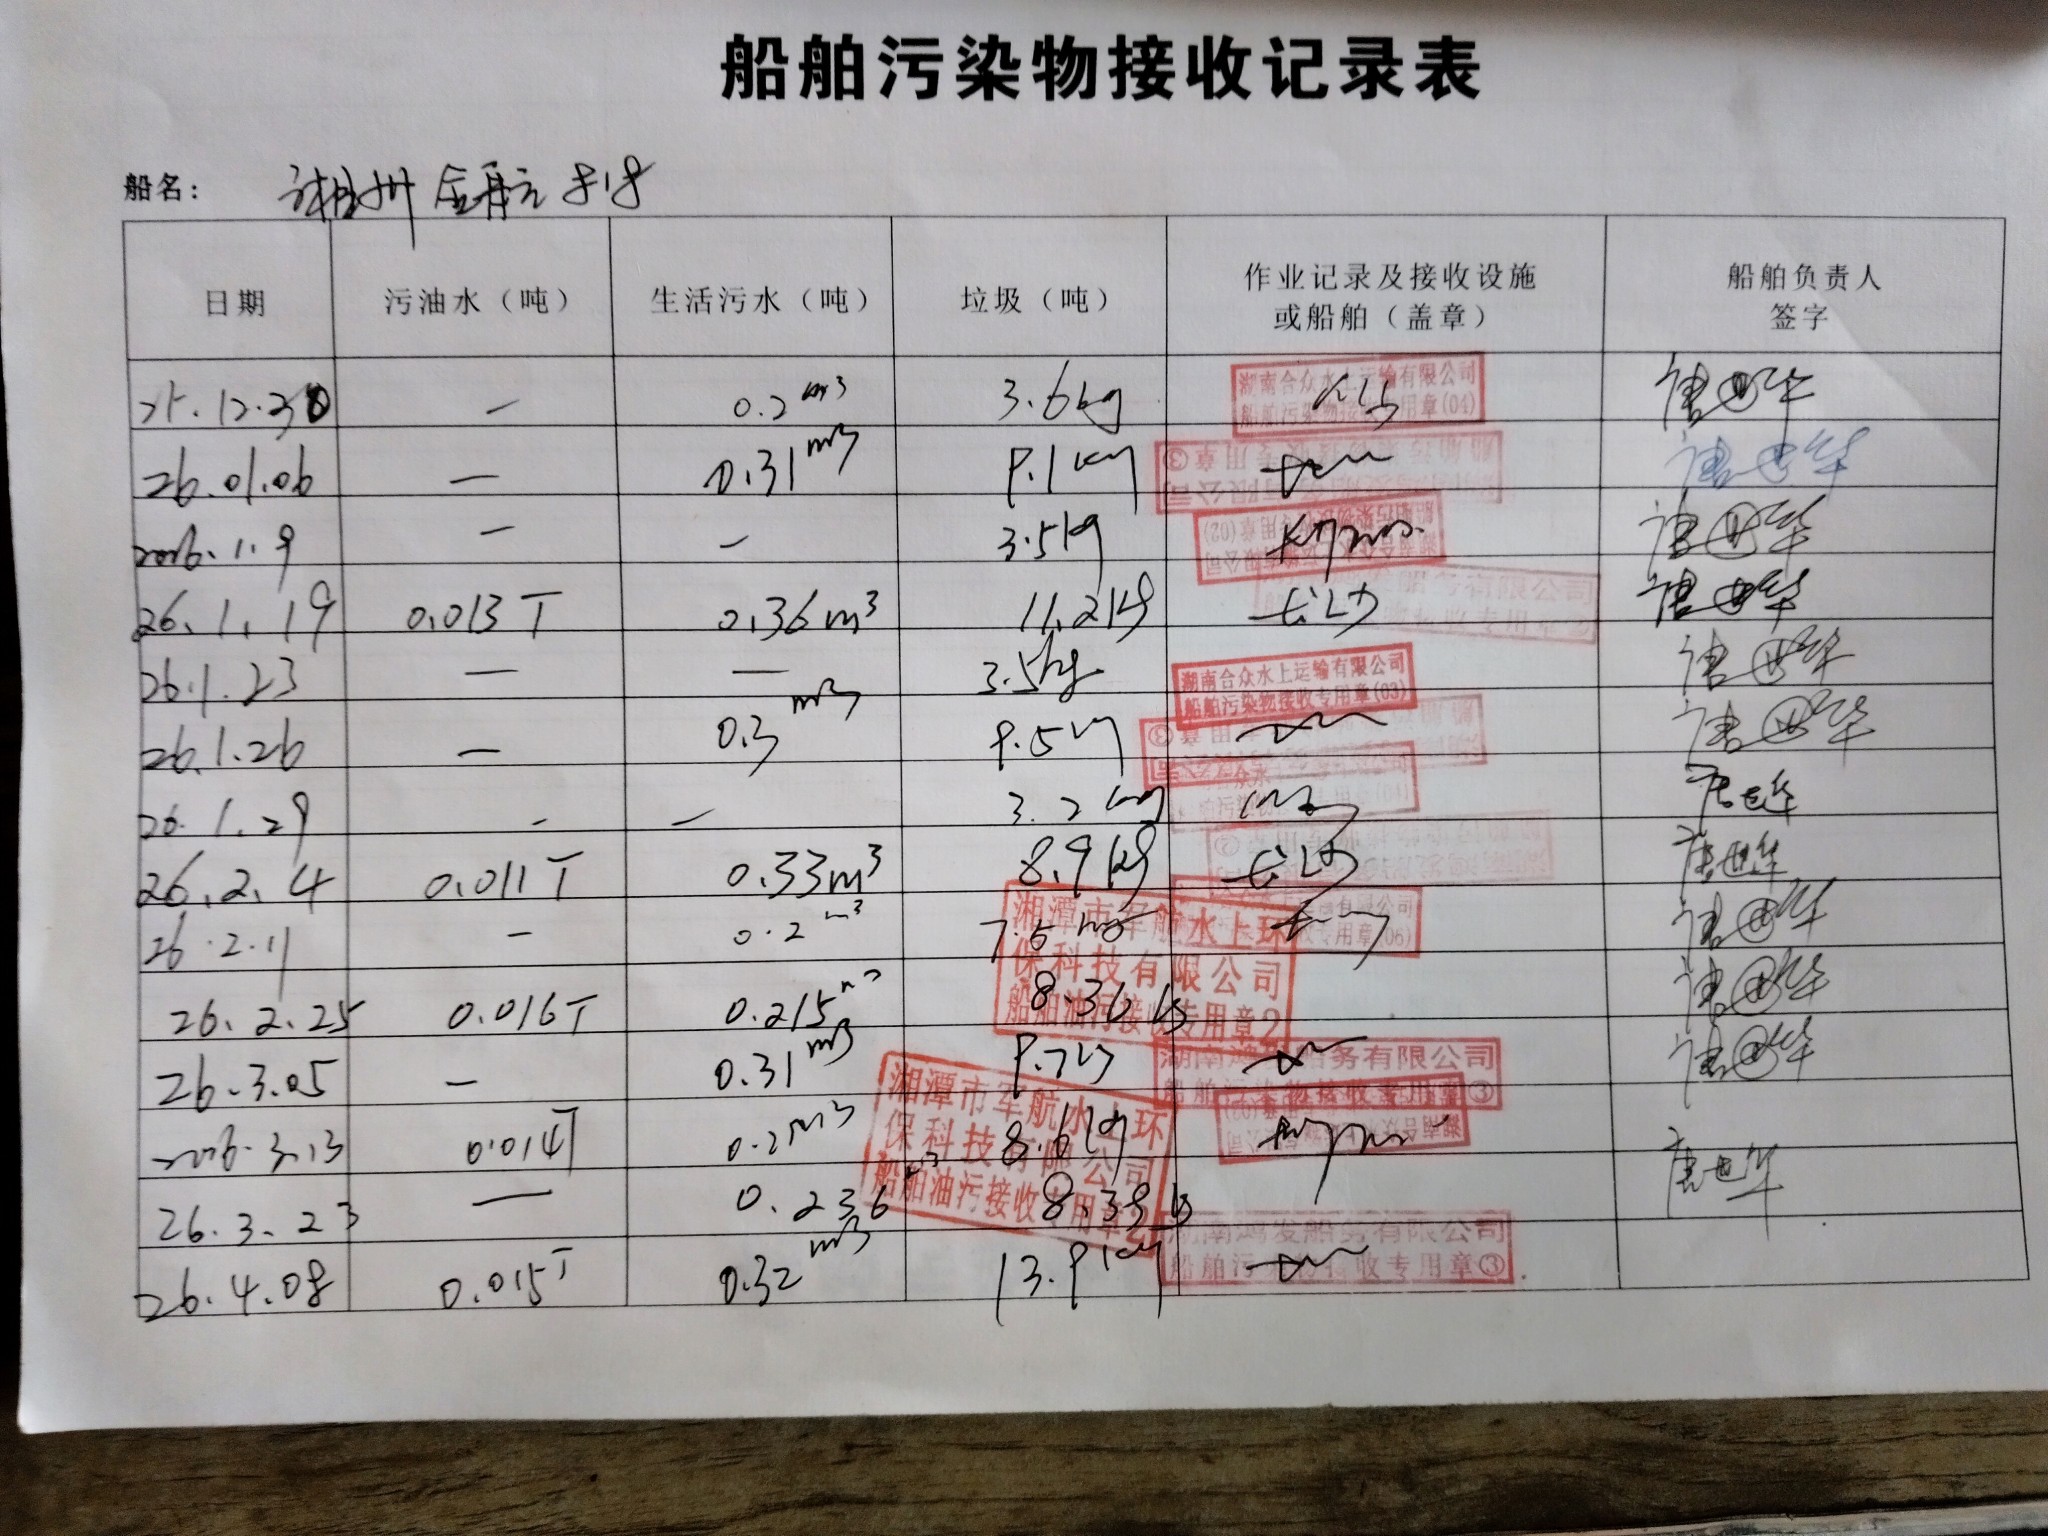 船舶污染物接收记录表
船名： 金航818
日期 污油水（吨） 生活污水（吨） 垃圾（吨） 作业记录及接收设施或船舶（盖章） 船舶负责人签字
25.12.30 — 0.2m³ 3.6kg 湖南合众水上运输有限公司 船舶污染物接收专用章(04) 长沙 唐世华
26.01.06 — 0.31m³ 9.1kg 船舶污染物接收专用章③ 唐世华
2026.1.9 — — 3.5kg 唐世华
26.1.19 0.013T 0.36m³ 11.2kg 长沙 船务有限公司 唐世华
26.1.23 — — 3.5kg 湖南合众水上运输有限公司 船舶污染物接收专用章(03) 唐世华
26.1.26 — 0.3m³ 9.5kg 唐世华
26.1.29 - — 3.2kg 唐世华
26.2.4 0.011T 0.33m³ 8.9kg 长沙 唐世华
26.2.11 — 0.2m³ 7.5kg 专用章(06) 唐世华
26.2.25 0.016T 0.215m³ 8.36kg 湘潭市军航水上环保科技有限公司 船舶油污接收专用章2 唐世华
26.3.05 — 0.31m³ 9.7kg 湖南鸿发船务有限公司 船舶污染物接收专用章③ 唐世华
2026.3.13 0.014T 0.2m³ 8.6kg
26.3.23 — 0.236m³ 8.38kg 湘潭市军航水上环保科技有限公司 船舶油污接收专用章2 唐世华
26.4.08 0.015T 0.32m³ 13.9kg 湖南鸿发船务有限公司 船舶污染物接收专用章③